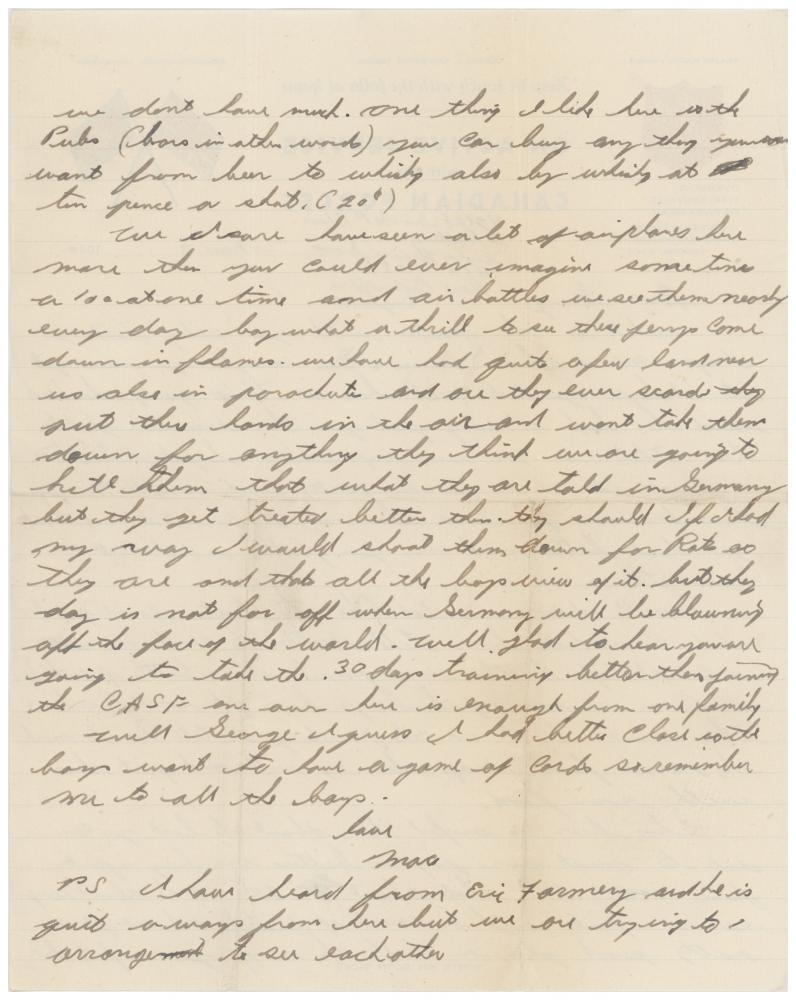 we dont have much. one thing I like here is the
Pubs (bars in other words) you can buy any thing you
want from beer to whisky also by whisky at
ten pence a shot. (20¢)
We I sare have seen a lot of airplanes here
more then you could ever imagine some time
a 100 at one time and air battles we see them nearly
every day boy what a thrill to see these jerrys come
down in flames. we have had quit a few land near
us also in parachute and are they ever scard they
put there hands in the air and wont take them
down for anything they think we are going to
kill them that what they are told in Germany
but they get treated better then they should If I had
my way I would shoot them down for Rats as
they are and that all the boys view of it. but the
day is not far off when Germany will be blowning
off the face of the world. well glad to hear you are
going to take the .30 days training better then joining
the CASF one over here is enough from one family
Well George I guess I had better Close as the
boys want to have a game of cards so remember
me to all the boys.
love
Mac
PS I have heard from Eric Farmery and he is
quit aways from here but we are trying to
arrangement to see each other